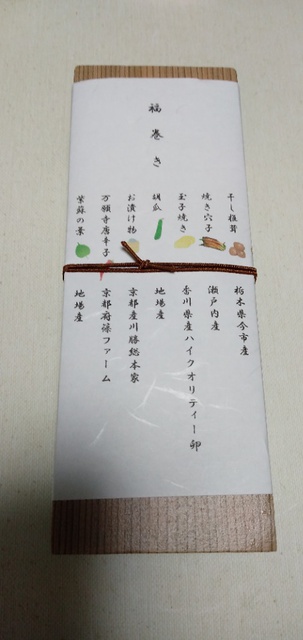 福巻き
干し椎茸 栃木県今市産
焼き穴子 瀬戸内産
玉子焼き 香川県産ハイクオリティー卵
胡瓜 地場産
お漬け物 京都産川勝総本家
万願寺唐辛子 京都府篠ファーム
紫蘇の葉 地場産